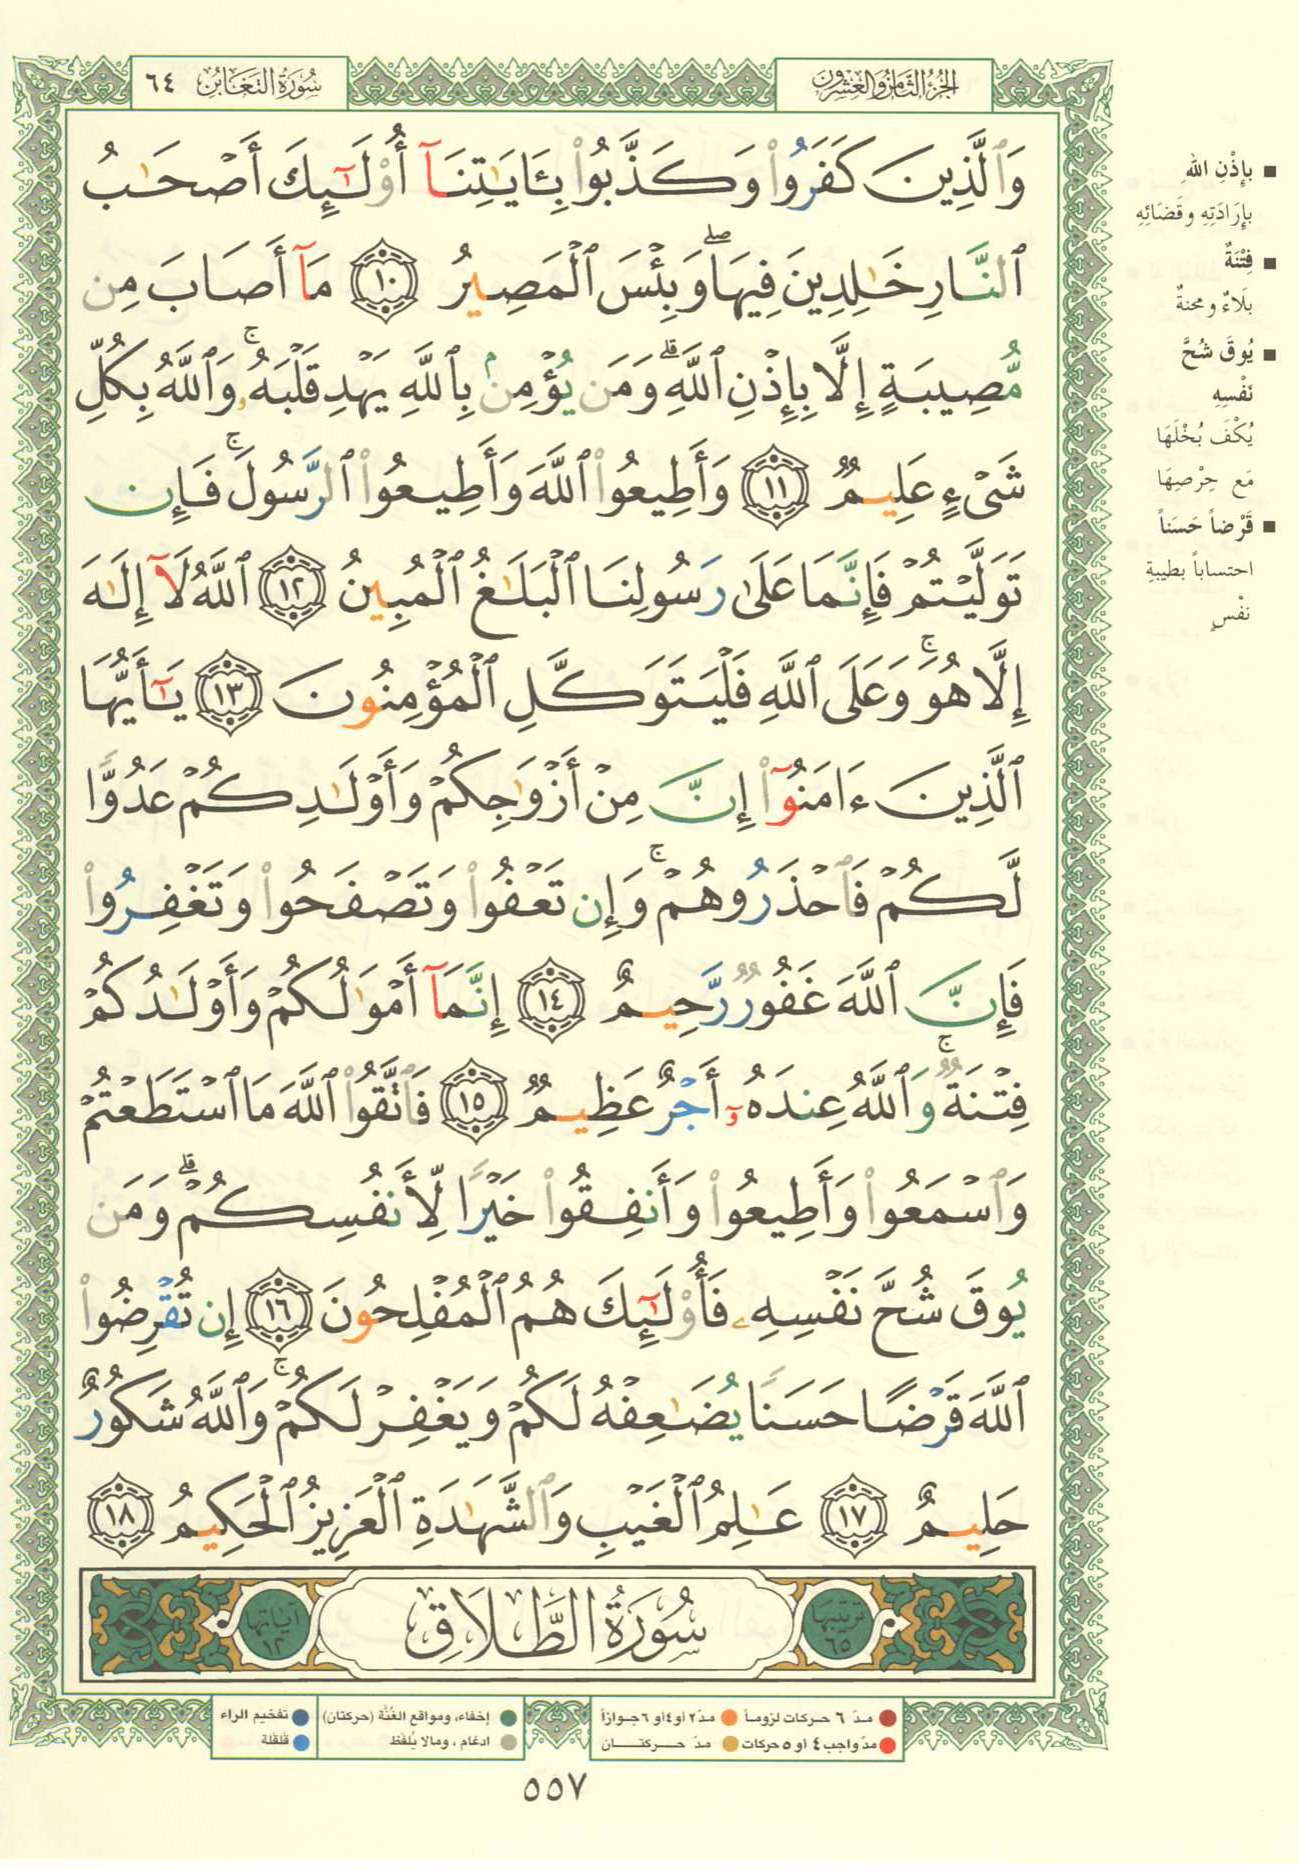 سُورَةُ التَّغَابُنِ ٦٤
الجُزْءُ الثَّامِنُ وَالعِشْرُونَ
وَٱلَّذِينَ كَفَرُوا۟ وَكَذَّبُوا۟ بِـَٔايَـٰتِنَآ أُو۟لَـٰٓئِكَ أَصْحَـٰبُ
ٱلنَّارِ خَـٰلِدِينَ فِيهَا ۖ وَبِئْسَ ٱلْمَصِيرُ ١٠ مَآ أَصَابَ مِن
مُّصِيبَةٍ إِلَّا بِإِذْنِ ٱللَّهِ ۗ وَمَن يُؤْمِنۢ بِٱللَّهِ يَهْدِ قَلْبَهُۥ ۚ وَٱللَّهُ بِكُلِّ
شَىْءٍ عَلِيمٌ ١١ وَأَطِيعُوا۟ ٱللَّهَ وَأَطِيعُوا۟ ٱلرَّسُولَ ۚ فَإِن
تَوَلَّيْتُمْ فَإِنَّمَا عَلَىٰ رَسُولِنَا ٱلْبَلَـٰغُ ٱلْمُبِينُ ١٢ ٱللَّهُ لَآ إِلَـٰهَ
إِلَّا هُوَ ۚ وَعَلَى ٱللَّهِ فَلْيَتَوَكَّلِ ٱلْمُؤْمِنُونَ ١٣ يَـٰٓأَيُّهَا
ٱلَّذِينَ ءَامَنُوٓا۟ إِنَّ مِنْ أَزْوَٰجِكُمْ وَأَوْلَـٰدِكُمْ عَدُوًّا
لَّكُمْ فَٱحْذَرُوهُمْ ۚ وَإِن تَعْفُوا۟ وَتَصْفَحُوا۟ وَتَغْفِرُوا۟
فَإِنَّ ٱللَّهَ غَفُورٌ رَّحِيمٌ ١٤ إِنَّمَآ أَمْوَٰلُكُمْ وَأَوْلَـٰدُكُمْ
فِتْنَةٌ ۚ وَٱللَّهُ عِندَهُۥٓ أَجْرٌ عَظِيمٌ ١٥ فَٱتَّقُوا۟ ٱللَّهَ مَا ٱسْتَطَعْتُمْ
وَٱسْمَعُوا۟ وَأَطِيعُوا۟ وَأَنفِقُوا۟ خَيْرًا لِّأَنفُسِكُمْ ۗ وَمَن
يُوقَ شُحَّ نَفْسِهِۦ فَأُو۟لَـٰٓئِكَ هُمُ ٱلْمُفْلِحُونَ ١٦ إِن تُقْرِضُوا۟
ٱللَّهَ قَرْضًا حَسَنًا يُضَـٰعِفْهُ لَكُمْ وَيَغْفِرْ لَكُمْ ۚ وَٱللَّهُ شَكُورٌ
حَلِيمٌ ١٧ عَـٰلِمُ ٱلْغَيْبِ وَٱلشَّهَـٰدَةِ ٱلْعَزِيزُ ٱلْحَكِيمُ ١٨
ترتيبها ٦٥
سُورَةُ الطَّلَاقِ
آياتها ١٢
■ بإِذْنِ الله
بإرَادَتِهِ وقَضَائِهِ
■ فِتْنَةٌ
بلَاءٌ ومحنةٌ
■ يُوقَ شُحَّ
نَفْسِهِ
يُكْفَ بُخْلَهَا
مَع حِرْصِهَا
■ قَرْضاً حَسَناً
احتساباً بطيبةِ
نفْسٍ
● مدّ ٦ حركات لزوماً ● مدّ ٢ أو ٤ أو ٦ جوازاً
● مدّ واجب ٤ أو ٥ حركات ● مدّ حركتان
● إخفاء، ومواقع الغُنَّة (حركتان) ● تفخيم الراء
● ادغام، ومالا يُلفَظ ● قلقلة
٥٥٧